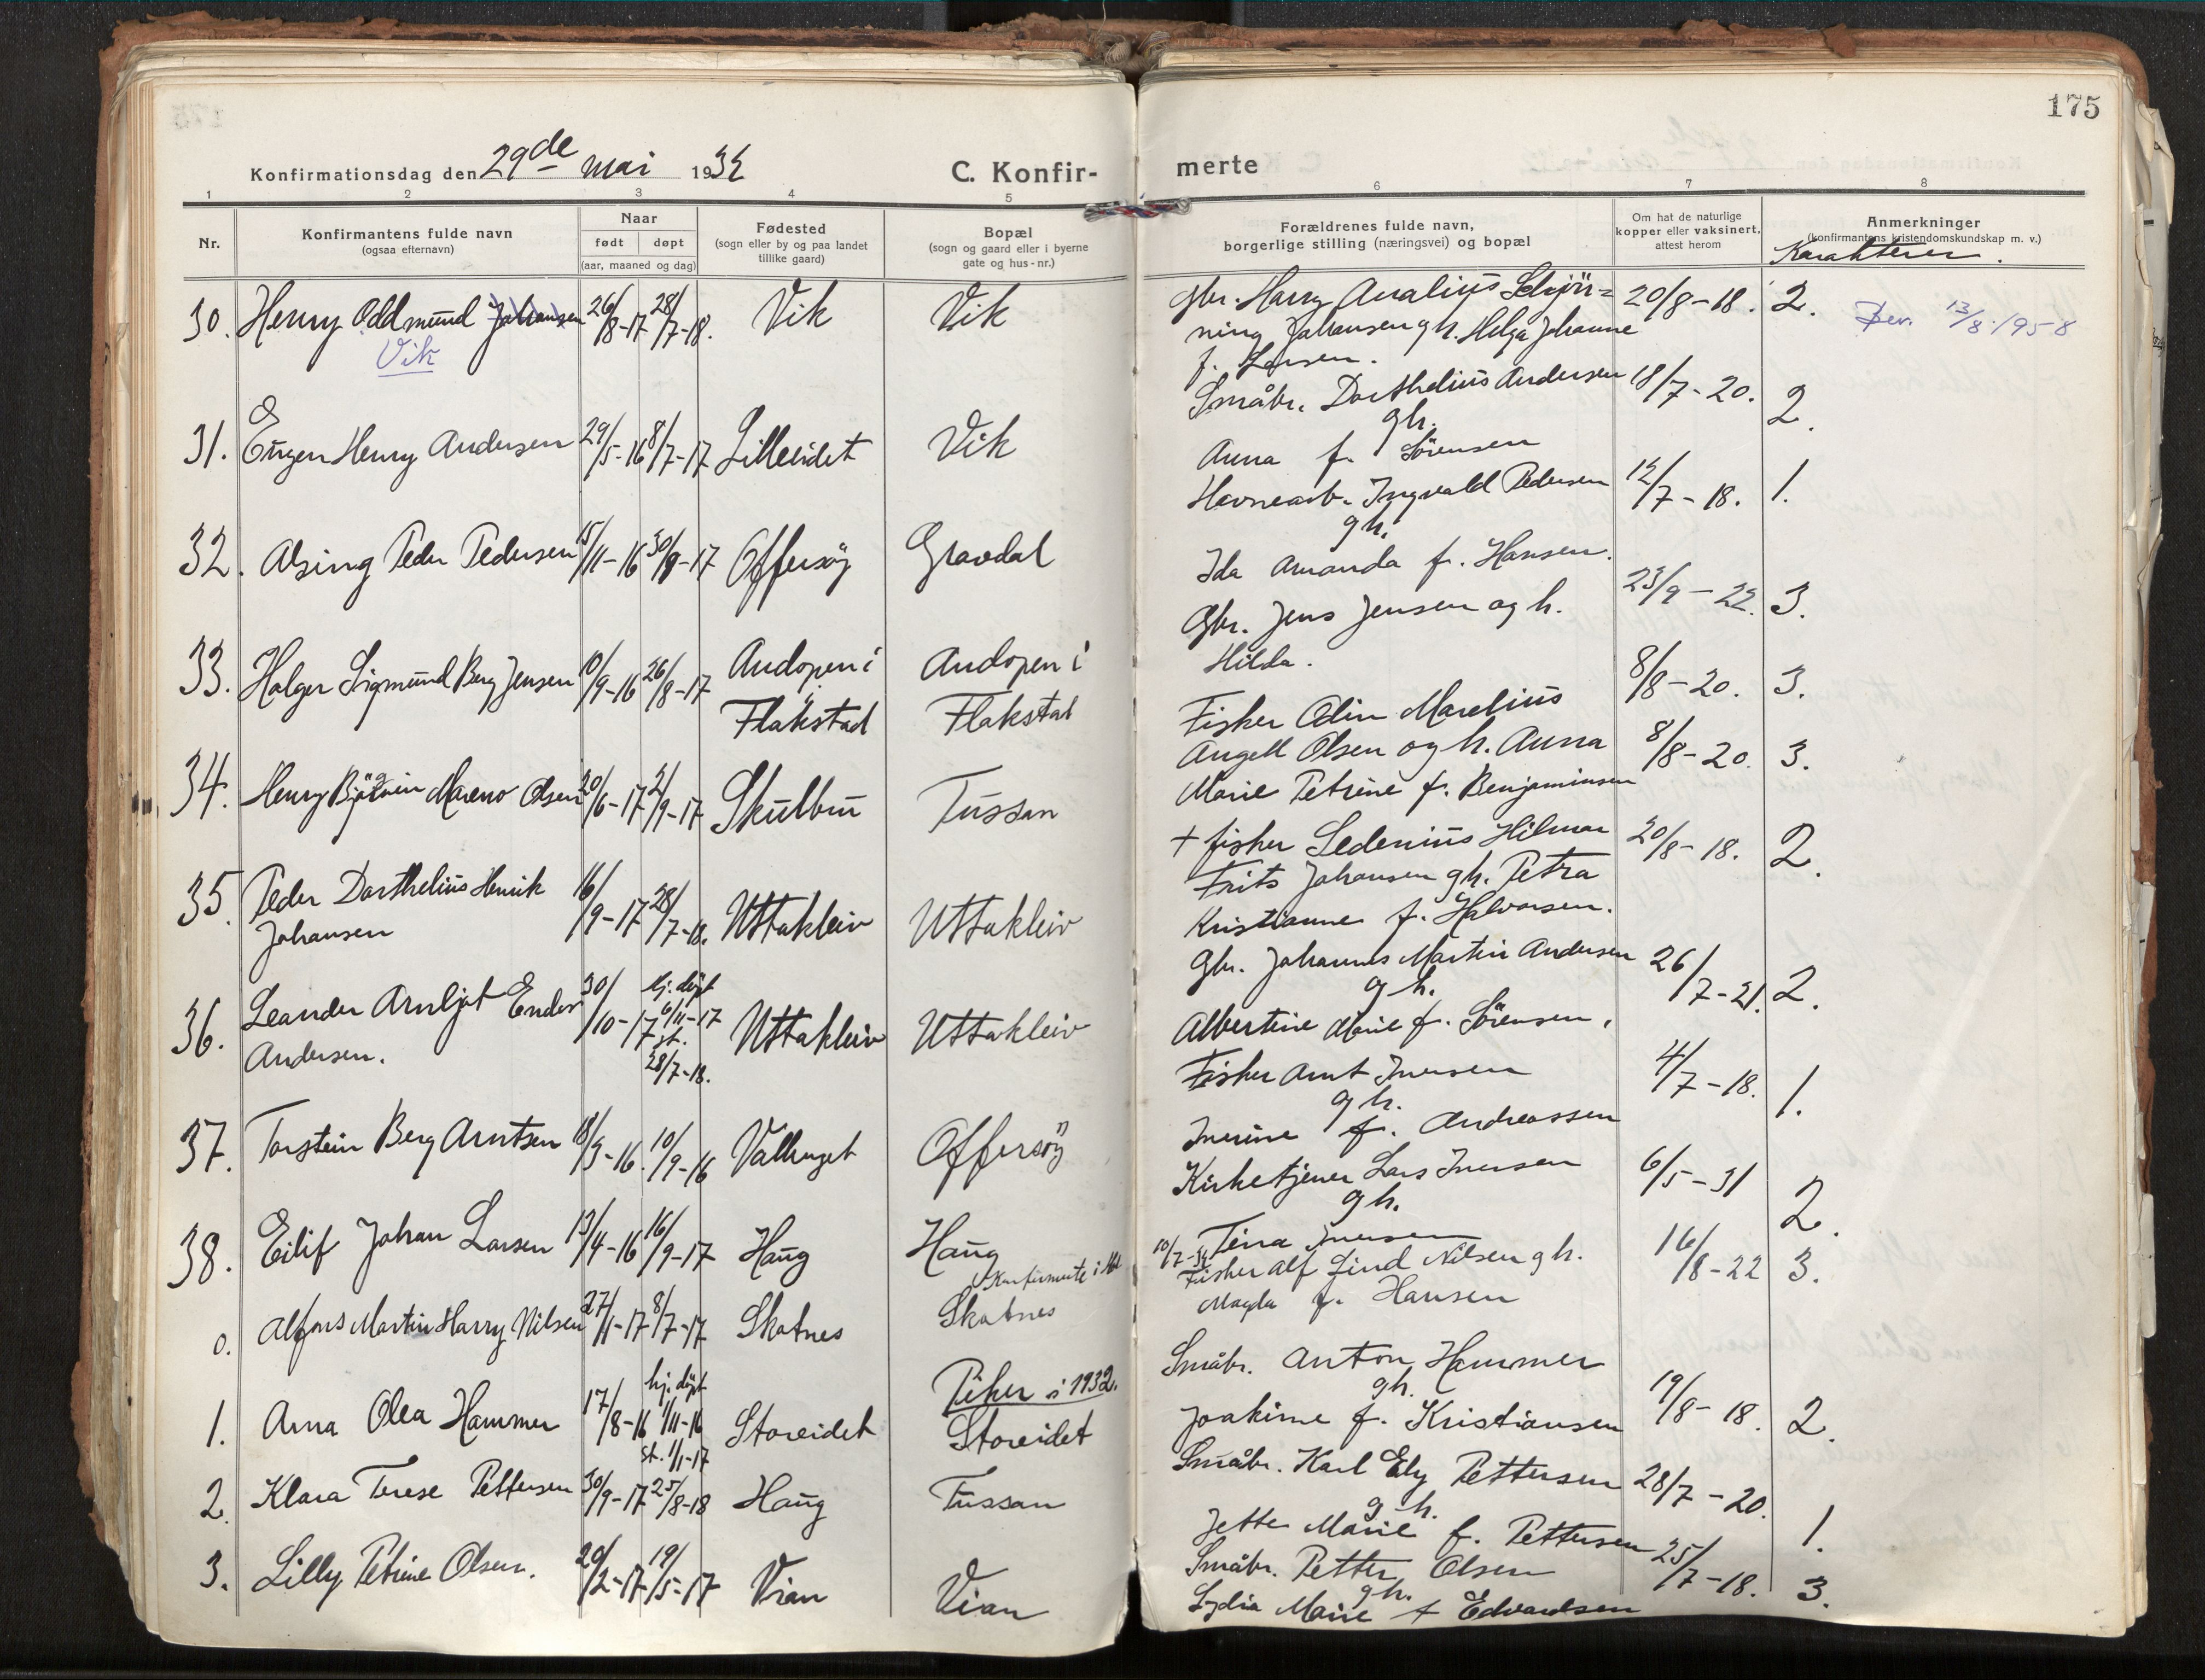 175
Konfirmationsdag den 29de mai 1932
C. Konfir-
merte
1 2 3 4 5
6 7 8
Nr.
Konfirmantens fulde navn
(ogsaa efternavn)
Naar
født døpt
(aar, maaned og dag)
Fødested
(sogn eller by og paa landet
tillike gaard)
Bopæl
(sogn og gaard eller i byerne
gate og hus-nr.)
Forældrenes fulde navn,
borgerlige stilling (næringsvei) og bopæl
Om hat de naturlige
kopper eller vaksinert,
attest herom
Anmerkninger
(konfirmantens kristendomskundskap m. v.)
Karakterer.
30. Henry Oddmund Johansen 26/8-17 28/7-18. Vik Vik
Vik
Gbr. Harry Analius Schjön=
ning Johansen g h. Helga Johanne
f. Larsen.
20/8-18. 2. Bev. 13/8-1958
31. Eugen Henry Andersen 29/5-16 8/7-17 Lilleeidet Vik
Småbr. Dorthelius Andersen
gh.
Anna f. Sörensen
18/7-20. 2.
32. Alsing Peder Pedersen 15/11-16 30/9-17 Offersöy Gravdal
Havnearb. Ingvald Pedersen
gh.
Ida Amanda f. Hansen.
12/7-18. 1.
33. Holger Sigmund Berg Jensen 10/9-16 26/8-17 Andopen i Flakstad Andopen i Flakstad
Gbr. Jens Jensen og h.
Hilda.
23/9-22. 3.
8/8-20. 3.
34. Henry Mareno Olsen 20/6-17 2/9-17 Skulbru Tussan
Fisker Odin Marelius
Angell Olsen og h. Anna
Marie Petrine f. Benjaminsen
8/8-20. 3.
35. Peder Dorthelius Henrik
Johansen
16/9-17 28/7-18. Uttakleiv Uttakleiv
+ fisker Sedenius Hilmar
Frits Johansen gh. Petra
Kristianne f. Halvorsen.
20/8-18. 2.
36. Leander Arnljot Ender
Andersen.
30/10-17 hj. döpt
6/11-17
st.
28/7-18.
Uttakleiv Uttakleiv
Gbr. Johannes Martin Andersen
g h.
Albertine Marie f. Sörensen,
26/7-21. 2.
37. Torstein Berg Arntsen 18/3-16. 10/9-16 Valhaget Offersöy
Fisker Arnt Iversen
g h.
Inerine f. Andreassen
4/7-18. 1.
38. Eilif Johan Larsen 13/4-16 16/9-17 Haug Haug
Kirketjener Lars Iversen
g h.
Tina Iversen
6/5-31 2.
Konfirmerte i
0. Alfons Martin Harry Nilsen 27/1-17 8/7-17 Skotnes Skotnes
Fisker Alf Lind Nilsen g h.
Magda f. Hansen
16/8-22 3.
Piker i 1932.
1. Anna Olea Hammer 17/8-16 hj. döpt
1/11-16
st. 1/1-17
Storeidet Storeidet
Småbr. Anton Hammer
gh.
Joakime f. Kristiansen
19/8-18. 2.
2. Klara Terese Pettersen 30/9-17 25/8-18 Haug Tussan
Småbr. Karl Ely Pettersen
g h.
Jette Marie f. Pettersen
28/7-20. 1.
3. Lilly Petrine Olsen. 20/2-17 19/5-17 Vian Vian
Småbr. Petter Olsen
gh.
Lydia Marie f Edvardsen
25/7-18. 3.